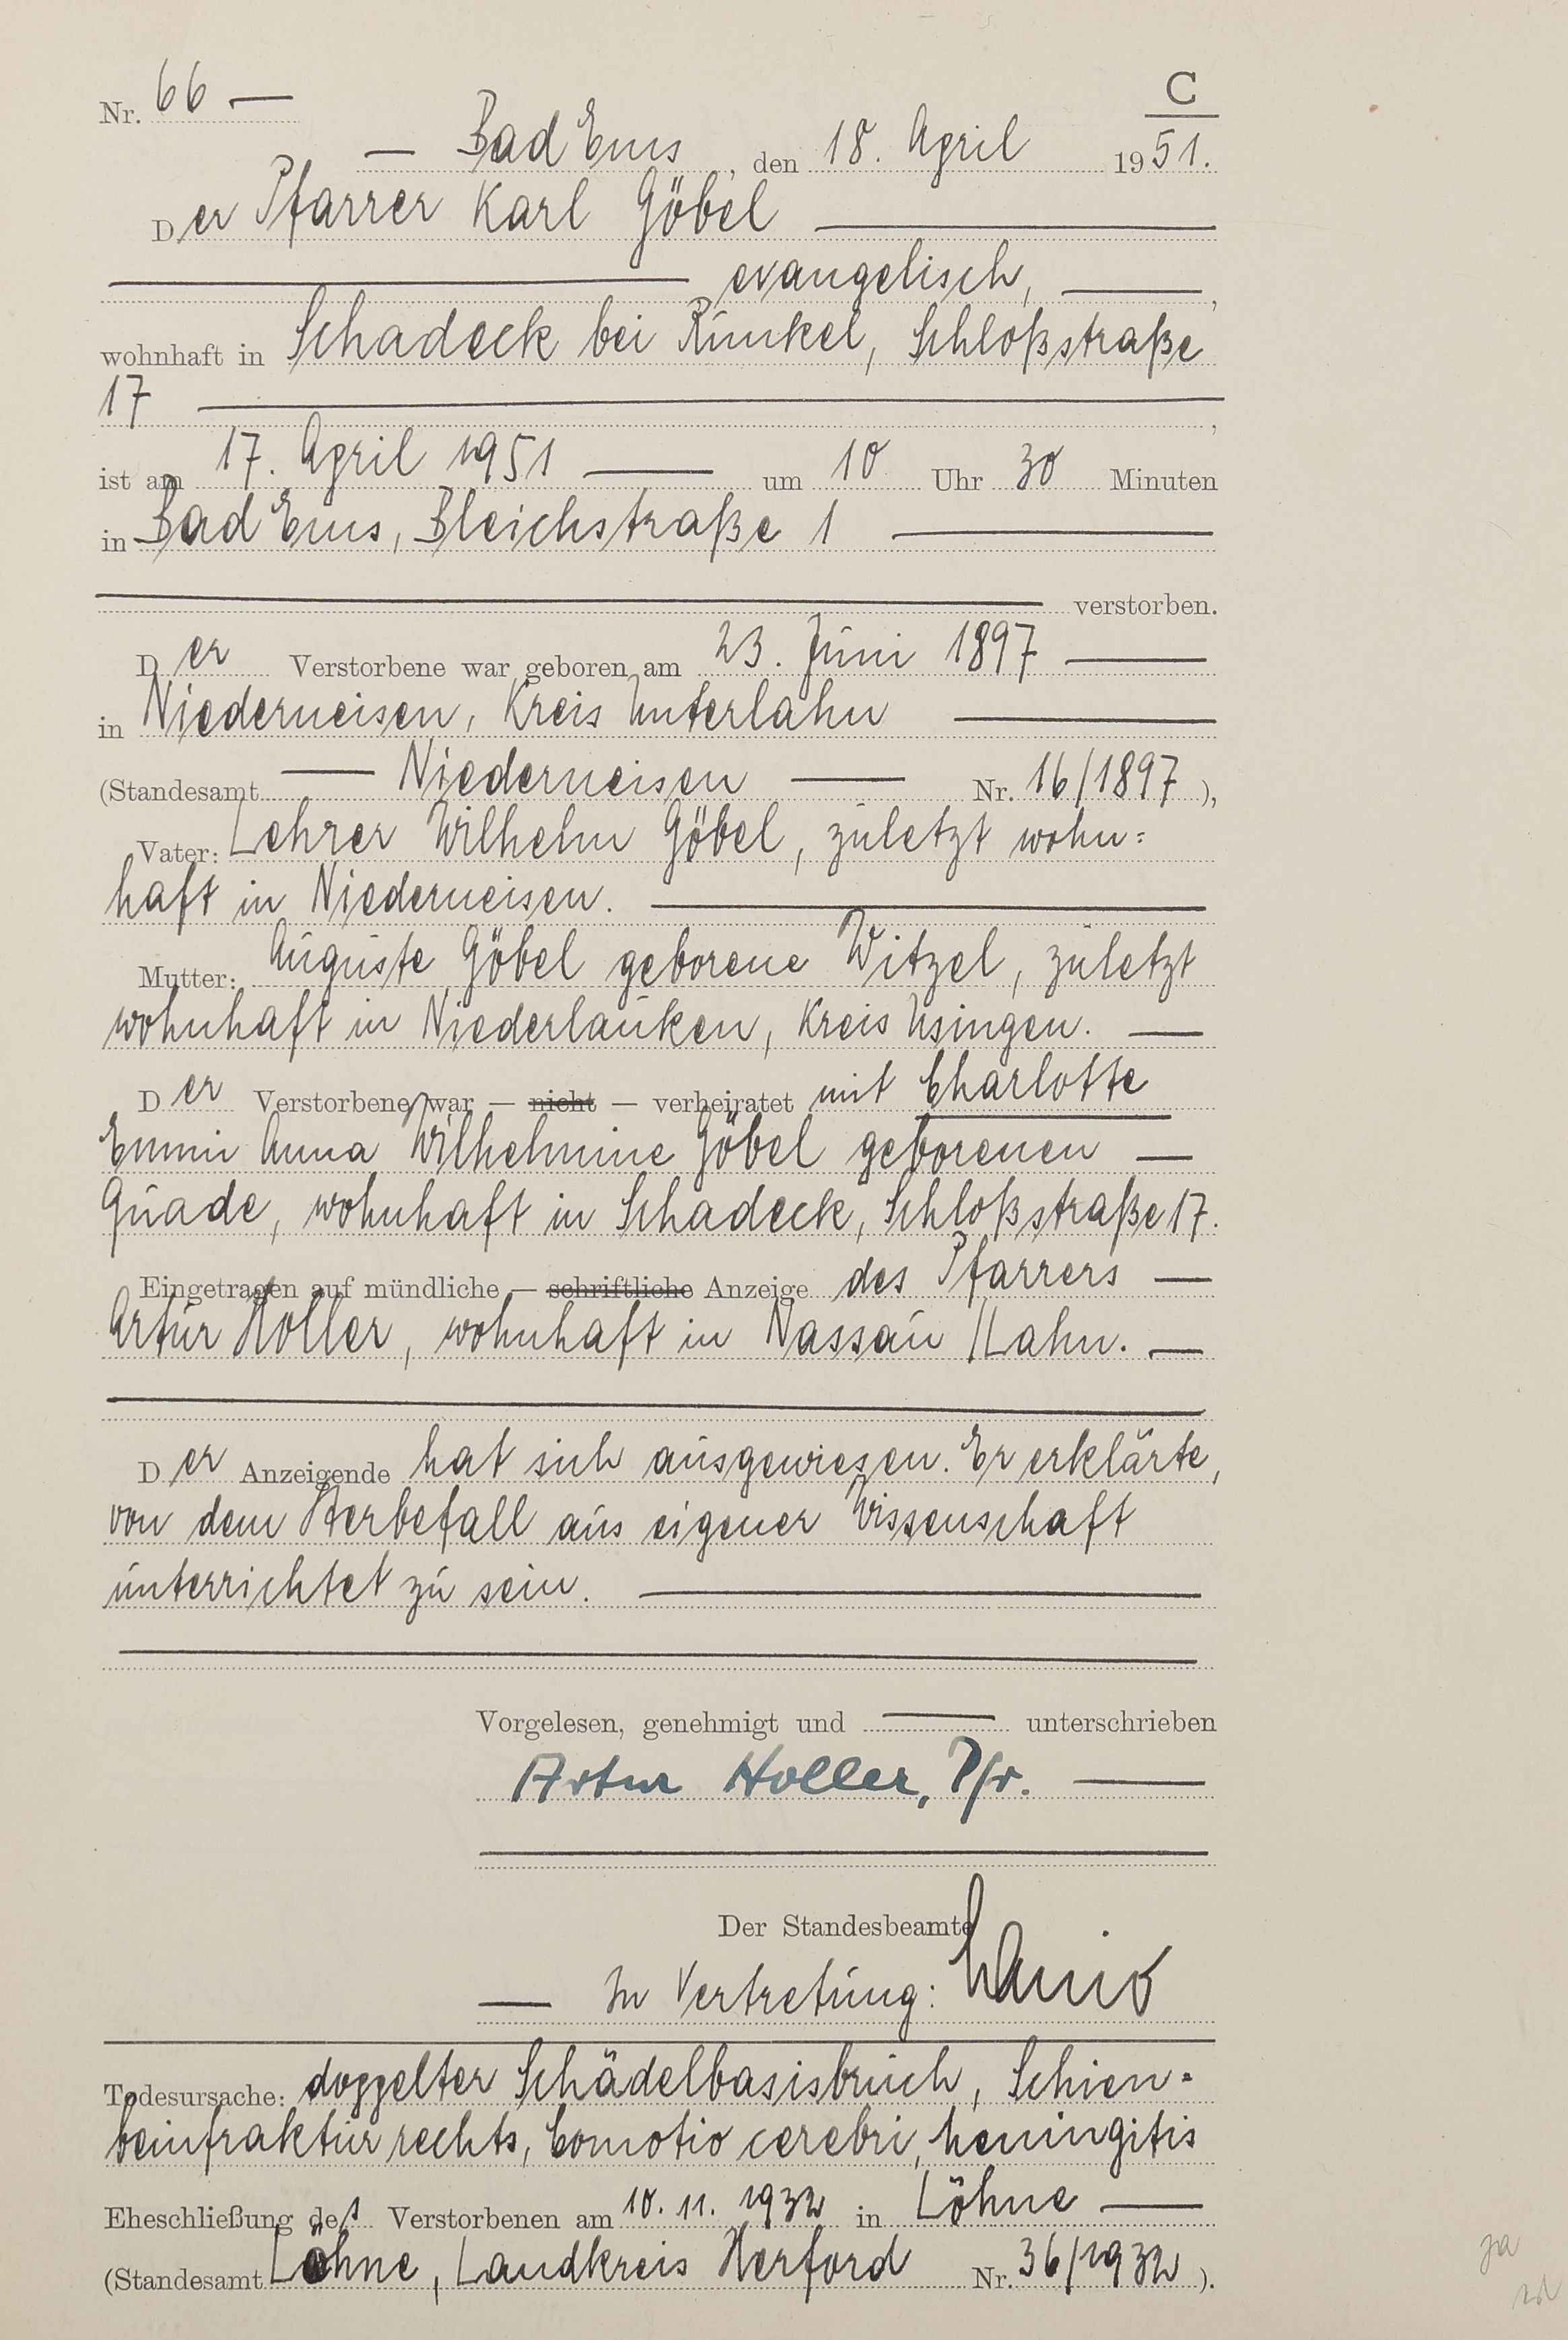 C
Nr. 66 —
— Bad Ems, den 18. April 1951.
Der Pfarrer Karl Göbel —
— evangelisch, —,
wohnhaft in Schadeck bei Runkel, Schloßstraße
17 —,
ist am 17. April 1951 — um 10 Uhr 30 Minuten
in Bad Ems, Bleichstraße 1 —
— verstorben.
Der Verstorbene war geboren am 23. Juni 1897 —
in Niederneisen, Kreis Unterlahn —
(Standesamt — Niederneisen — Nr. 16/1897),
Vater: Lehrer Wilhelm Göbel, zuletzt wohn=
haft in Niederneisen. —
Mutter: Auguste Göbel geborene Witzel, zuletzt
wohnhaft in Niederlauken, Kreis Usingen. —
Der Verstorbene war — nicht — verheiratet mit Charlotte
Emmi Anna Wilhelmine Göbel geborenen —
Quade, wohnhaft in Schadeck, Schloßstraße 17.
Eingetragen auf mündliche — schriftliche Anzeige des Pfarrers —
Artur Holler, wohnhaft in Nassau /Lahn. —
Der Anzeigende hat sich ausgewiesen. Er erklärte,
von dem Sterbefall aus eigener Wissenschaft
unterrichtet zu sein. —
Vorgelesen, genehmigt und — unterschrieben
Artur Holler, Pfr. —
Der Standesbeamte
— In Vertretung:
Todesursache: doppelter Schädelbasisbruch, Schien=
beinfraktur rechts, Comotio cerebri, Meningitis
Eheschließung des Verstorbenen am 10. 11. 1932 in Löhne —
(Standesamt Löhne, Landkreis Herford Nr. 36/1932).